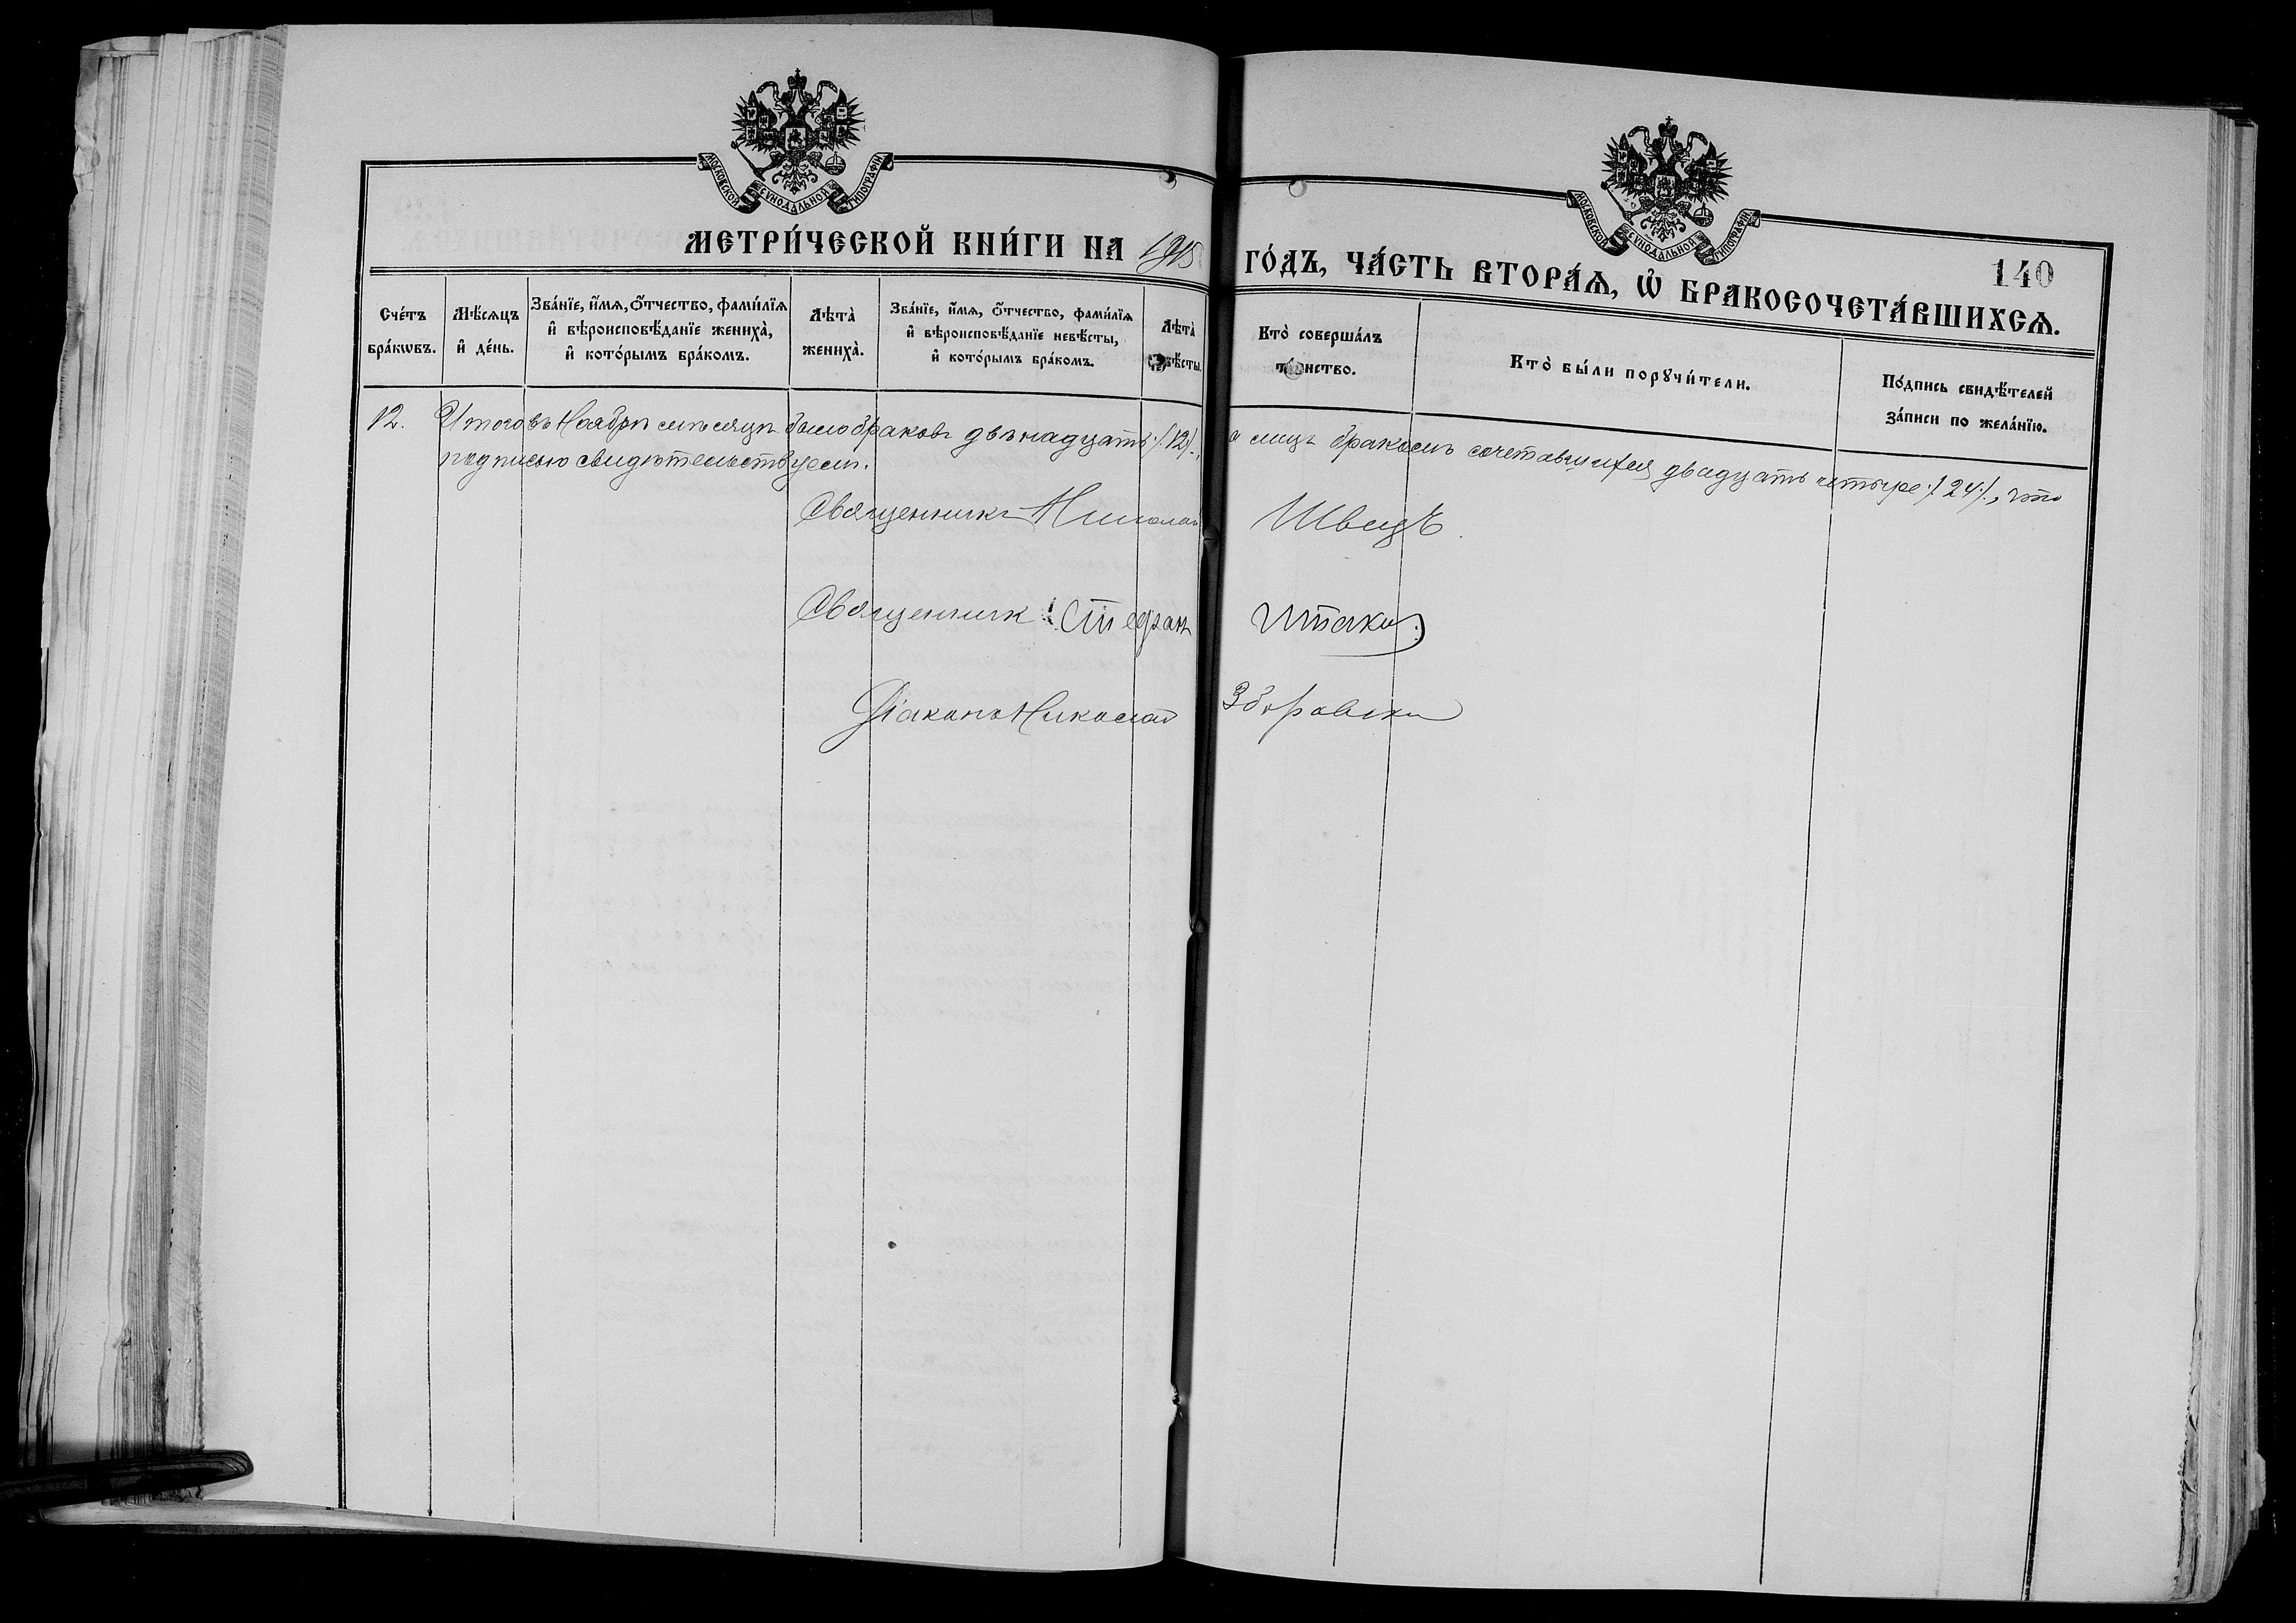 МОСКОВСКОЙ СУНОДАЛЬНОЙ ТИПОГРАФІИ
МОСКОВСКОЙ СУНОДАЛЬНОЙ ТИПОГРАФІИ
МЕТРИ́ЧЕСКОЙ КНИ́ГИ НА 1915 ГО́ДЪ, ЧА́СТЬ ВТОРА́Ѧ, Ѡ҆ БРАКОСОЧЕТА́ВШИХСѦ.
140
Сче́тъ
бра́кѡвъ.
Мѣ́сѧцъ
и҆ де́нь.
Зва́нїе, и҆́мѧ, ѻ҆́тчество, фами́лїѧ
и҆ вѣроисповѣ́данїе жениха̀,
и҆ кото́рымъ бра́комъ.
Лѣта̀
жениха̀.
Зва́нїе, и҆́мѧ, ѻ҆́тчество, фами́лїѧ
и҆ вѣроисповѣ́данїе невѣ́сты,
и҆ кото́рымъ бра́комъ.
Лѣта̀
невѣ́сты.
Кто̀ соверша́лъ
та́инство.
Кто̀ бы́ли порꙋчи́тели.
По́дпись свидѣ́телей
за́писи по жела́нїю.
12. Итого въ Ноябрѣ мѣсяцѣ было браковъ двѣнадцать /:12:/, а лицъ бракомъ сочетавшихся двадцать четыре /:24:/, что
подписью свидѣтельствуемъ.
Священникъ Николай Швецъ
Священник Стефан Иваки
Діаконъ Николай Зборовски